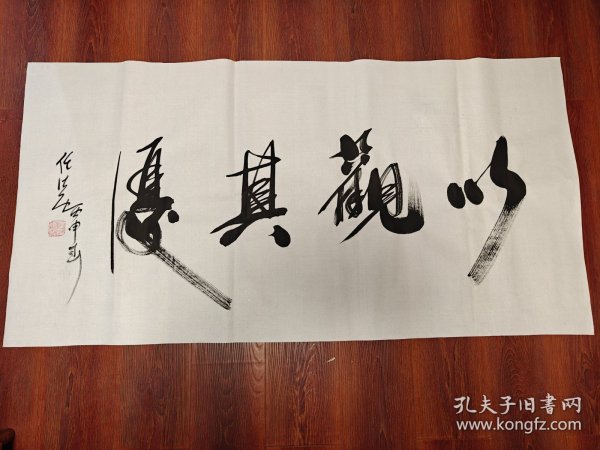 以觀其復
任法 丙申
孔夫子旧書网
www.kongfz.com